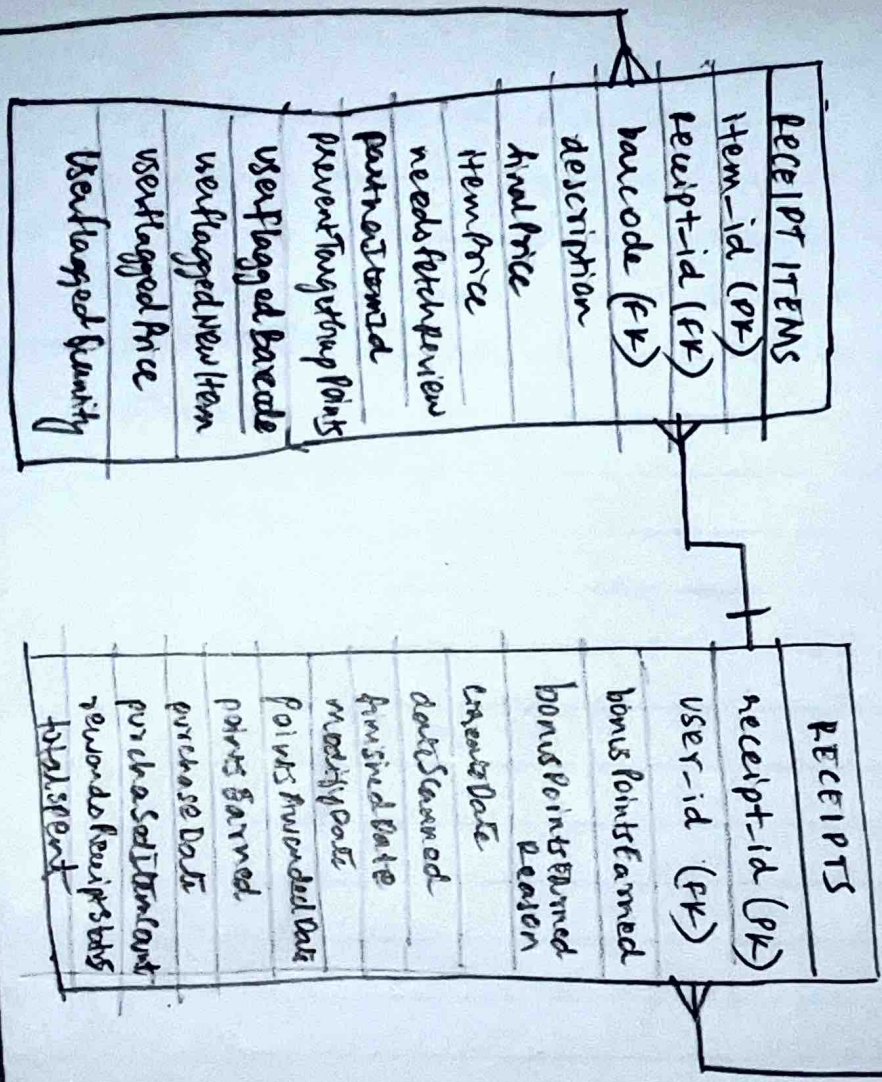 RECEIPT ITEMS
item_id (PK)
receipt_id (FK)
barcode (FK)
description
finalPrice
itemPrice
needsFetchReview
partnerItemId
preventTargetGapPoints
userFlaggedBarcode
userFlaggedNewItem
userFlaggedPrice
userFlaggedQuantity
RECEIPTS
receipt_id (PK)
user_id (FK)
bonusPointsEarned
bonusPointsEarned
Reason
createDate
dateScanned
finishedDate
modifyDate
PointsAwardedDate
pointsEarned
purchaseDate
purchasedItemCount
rewardsReceiptStatus
totalSpent